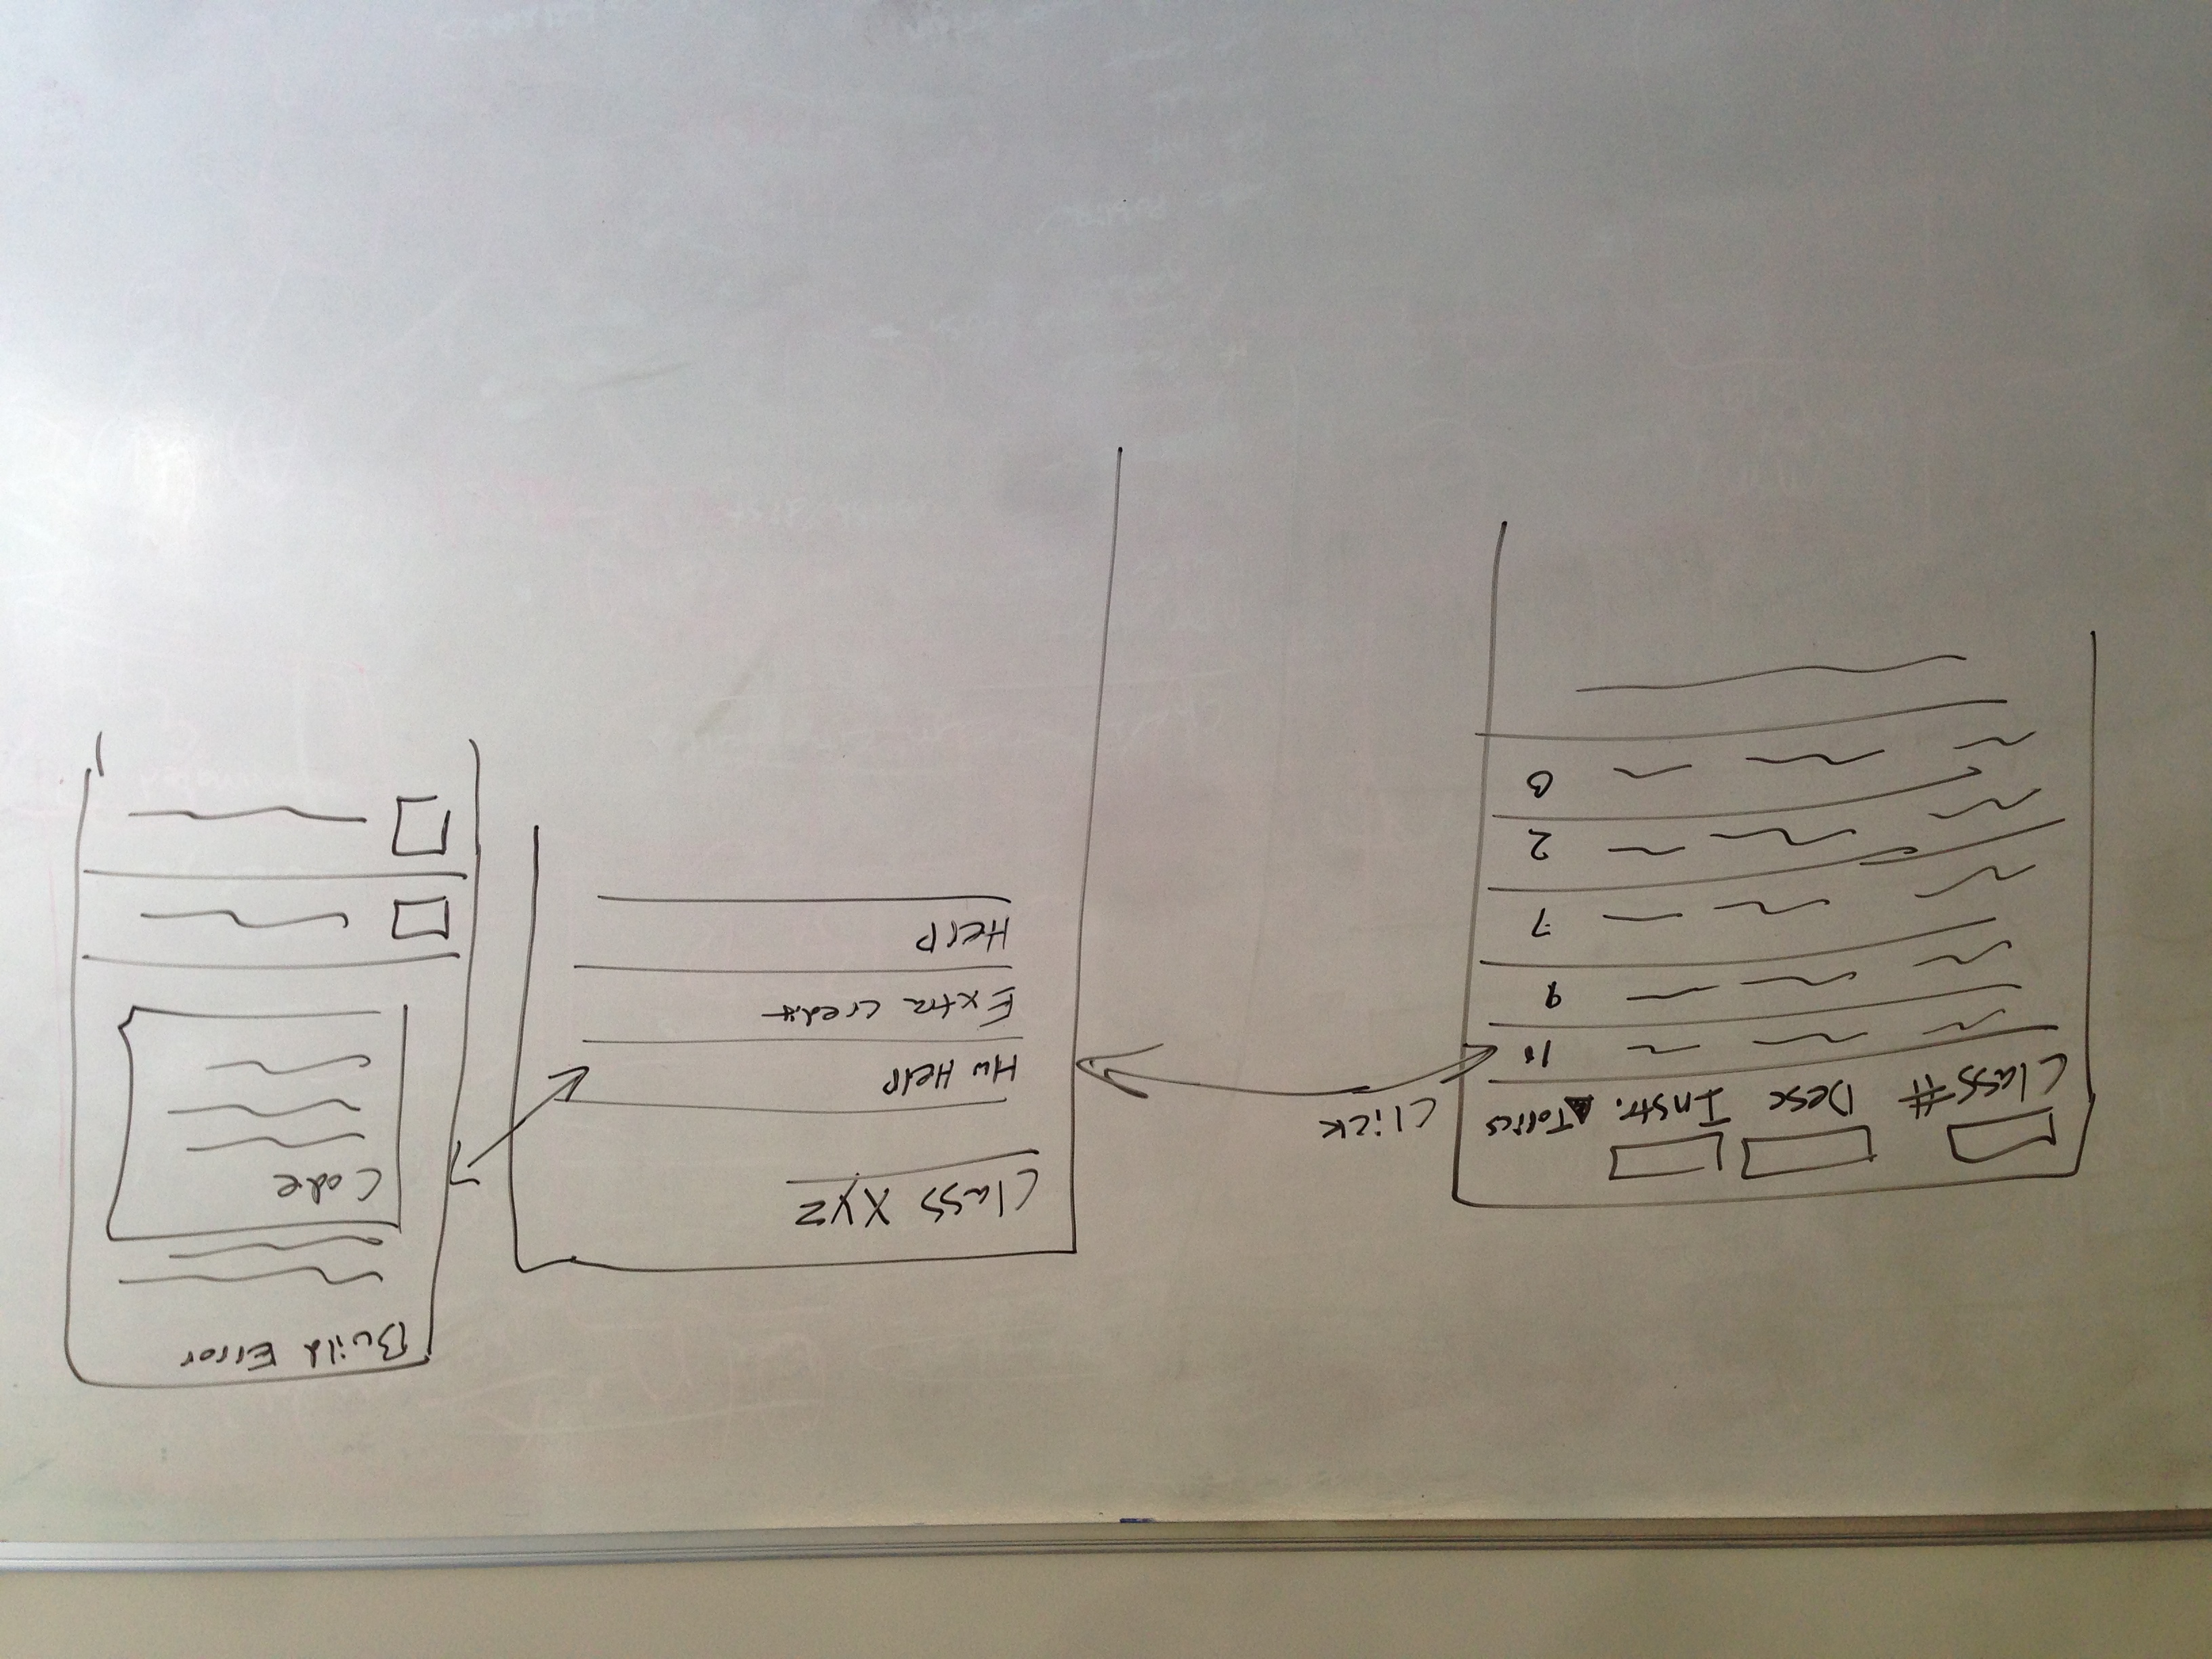 Class# Desc Instr. ▲Topics
10
9
7
2
0
Click
Class XYZ
Hw Help
Extra credit
Help
Build Error
Code